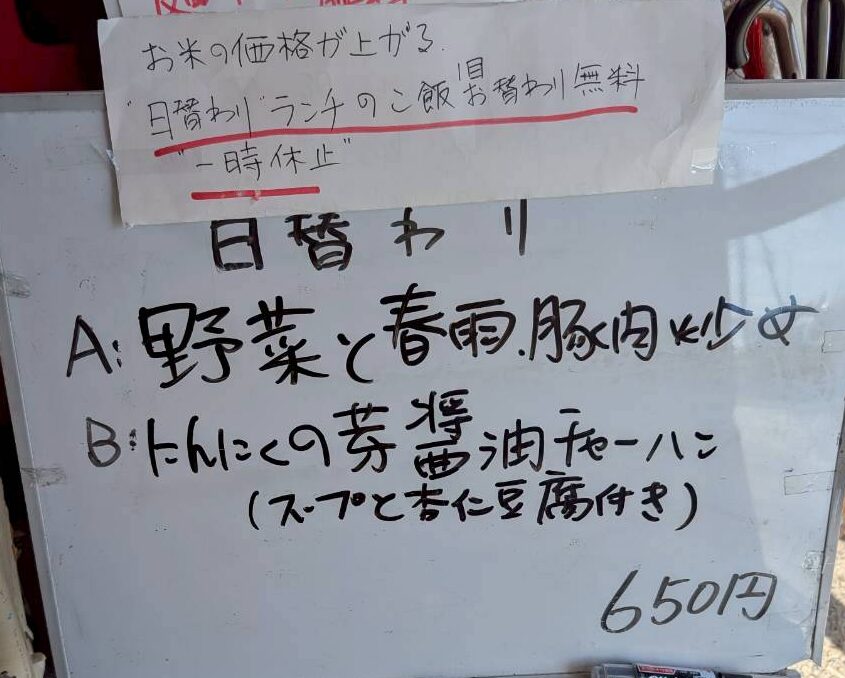 お米の価格が上がる.
"日替わり"ランチのご飯1目お替わり無料
"一時休止"
日替わり
A:野菜と春雨.豚肉炒め
B:にんにくの芽醤油チャーハン
(スープと杏仁豆腐付き)
650円